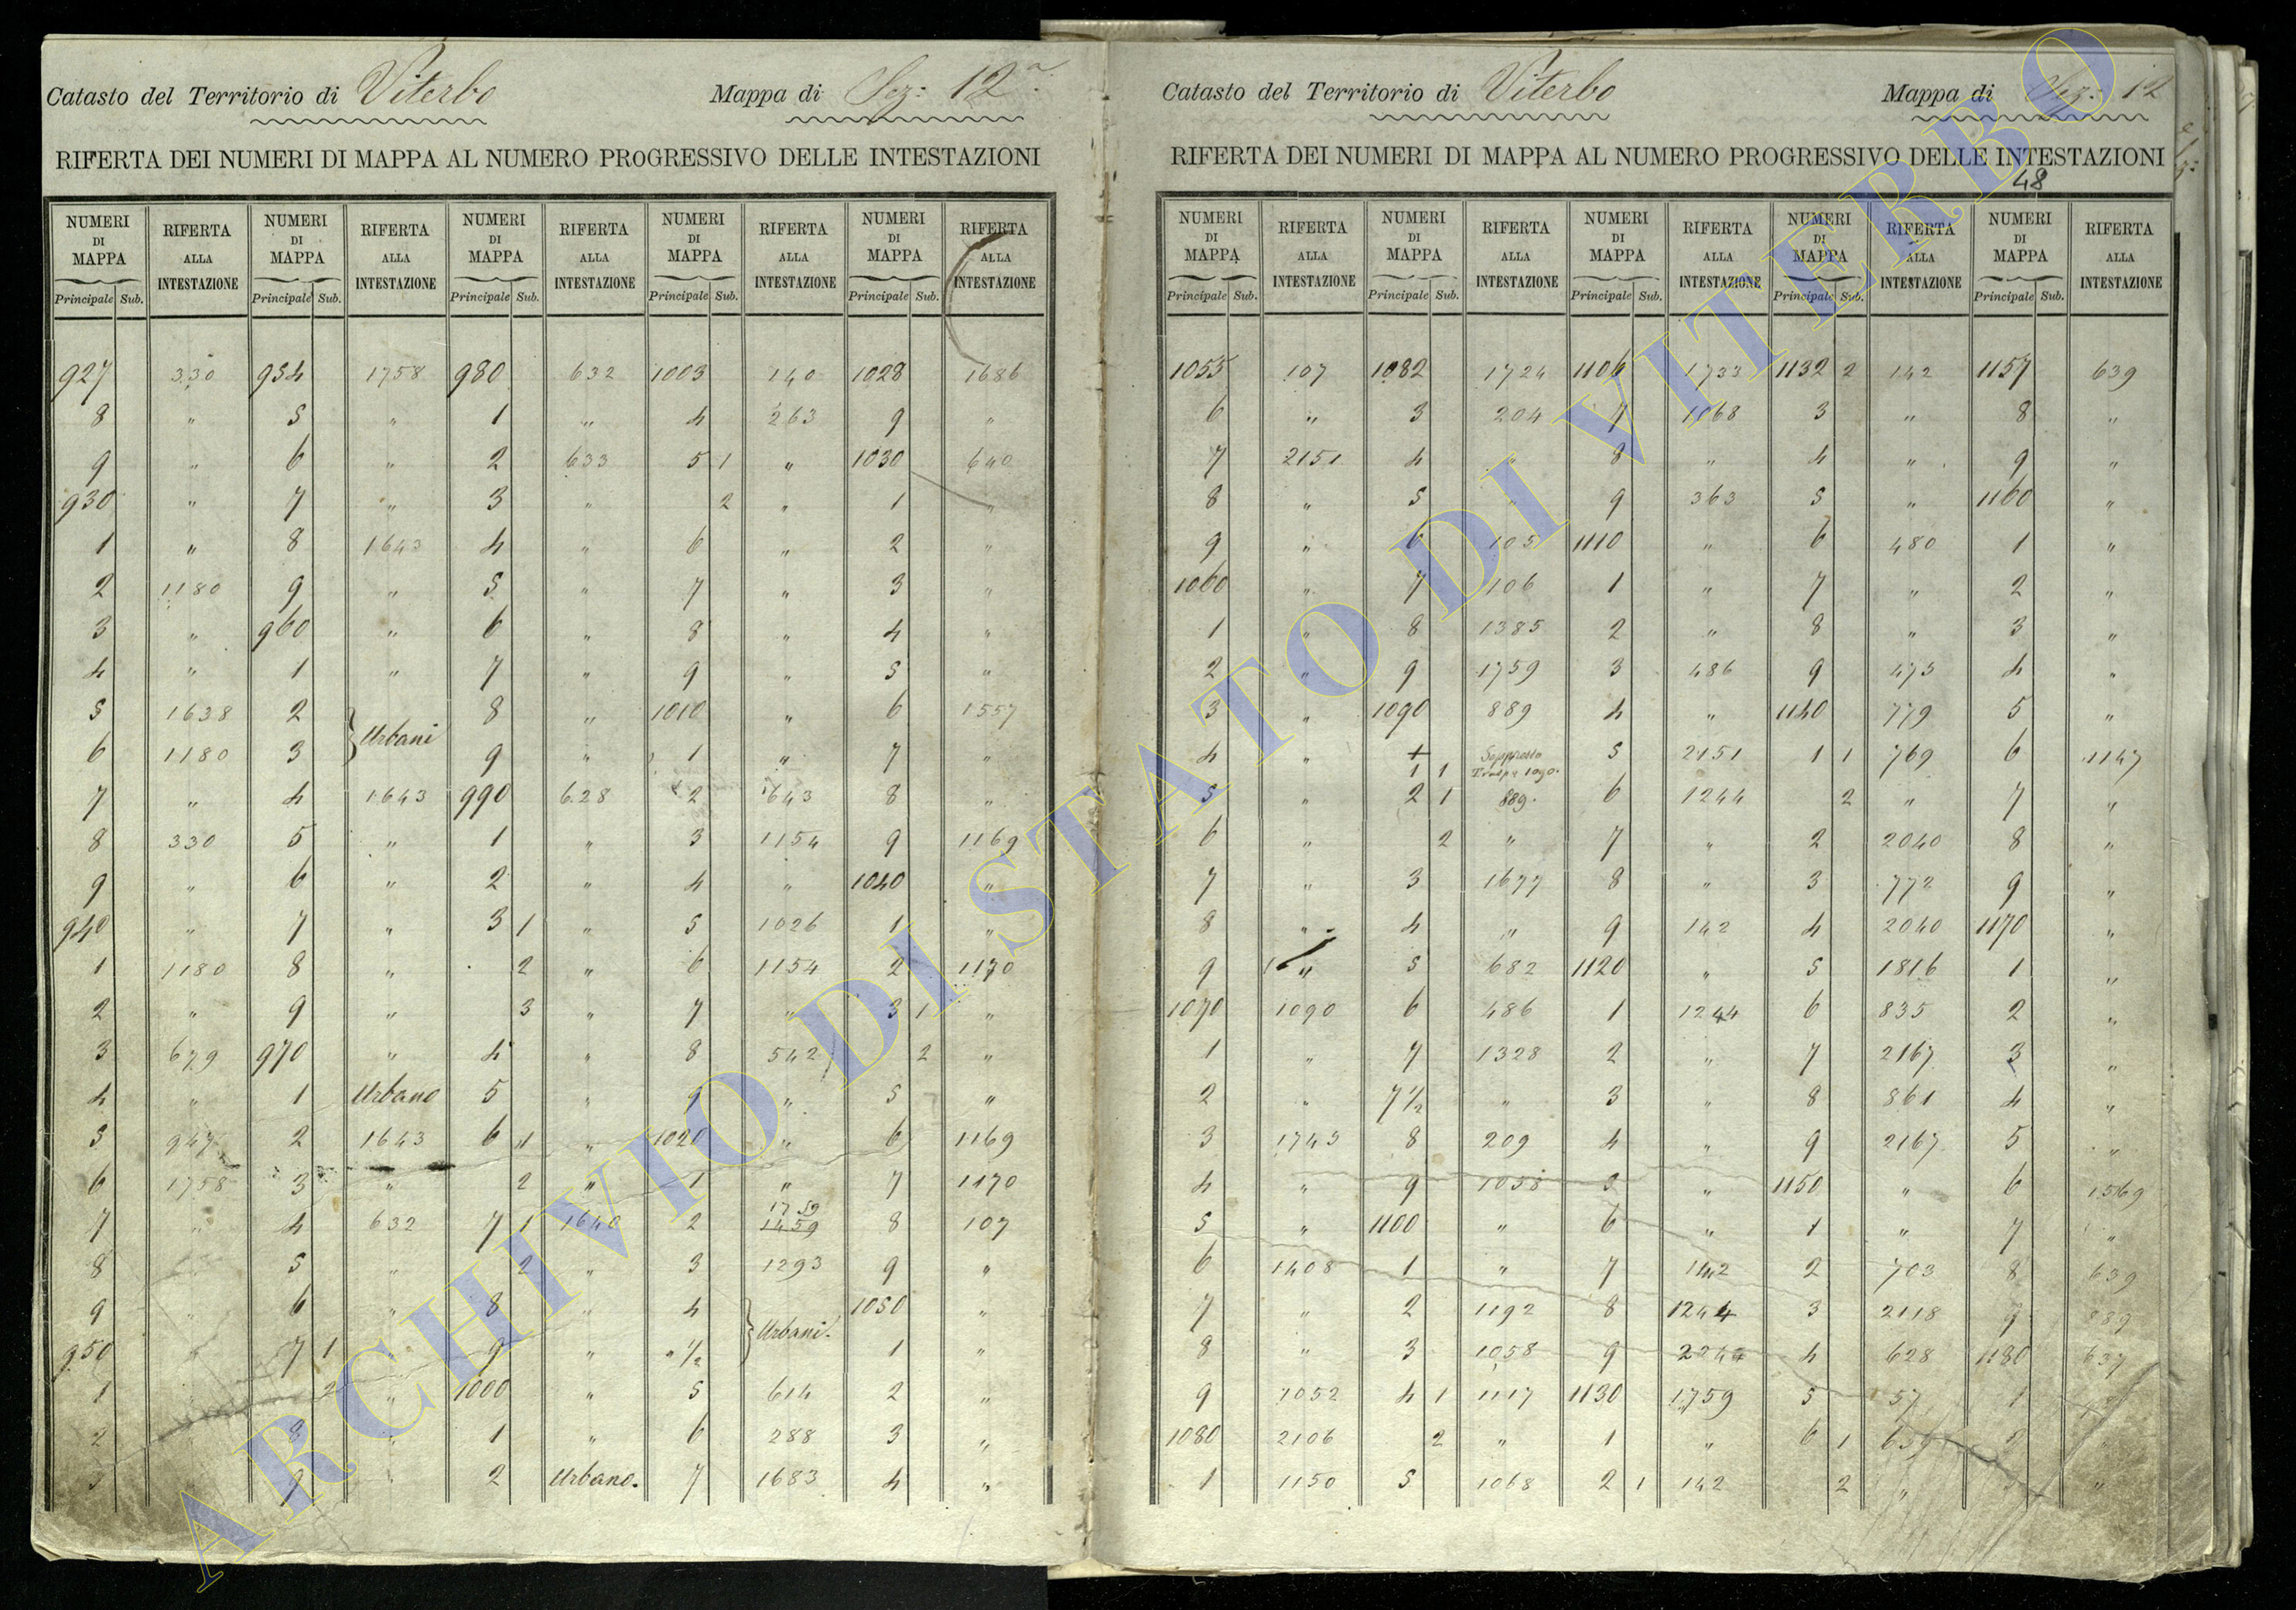 Catasto del Territorio di Viterbo Mappa di Sez: 12a
RIFERTA DEI NUMERI DI MAPPA AL NUMERO PROGRESSIVO DELLE INTESTAZIONI
NUMERI DI MAPPA RIFERTA ALLA INTESTAZIONE NUMERI DI MAPPA RIFERTA ALLA INTESTAZIONE NUMERI DI MAPPA RIFERTA ALLA INTESTAZIONE NUMERI DI MAPPA RIFERTA ALLA INTESTAZIONE NUMERI DI MAPPA RIFERTA ALLA INTESTAZIONE
Principale Sub. Principale Sub. Principale Sub. Principale Sub. Principale Sub.
927 330 954 1758 980 632 1003 140 1028 1686
8 " 5 " 1 " 4 263 9 "
9 " 6 " 2 633 5 1 " 1030 640
930 " 7 " 3 " 2 " 1 "
1 " 8 1643 4 " 6 " 2 "
2 1180 9 " 5 " 7 " 3 "
3 " 960 " 6 " 8 " 4 "
4 " 1 " 7 " 9 " 5 "
5 1638 2 Urbani 8 " 1010 " 6 1557
6 1180 3 9 " 1 " 7 "
7 " 4 1643 990 628 2 643 8 "
8 330 5 " 1 " 3 1154 9 1169
9 " 6 " 2 " 4 " 1040 "
940 " 7 " 3 1 " 5 1026 1 "
1 1180 8 " 2 " 6 1154 2 1170
2 " 9 " 3 " 7 " 3 1 "
3 679 970 " 4 " 8 542 2 "
4 " 1 Urbano 5 " 9 " 5 "
5 947 2 1643 6 1 " 1020 " 6 1169
6 1758 3 " 2 " 1 " 7 1170
7 " 4 632 7 1 1640 2 1759 1459 8 107
8 5 " 2 " 3 1293 9 "
9 6 " 8 " 4 Urbani. 1050 "
950 7 1 " 9 " " 1/2 1 "
1 2 " 1000 " 5 614 2 "
2 8 " 1 " 6 288 3 "
9 " 2 Urbano. 7 1683 4 "
Catasto del Territorio di Viterbo Mappa di Sez: 12
RIFERTA DEI NUMERI DI MAPPA AL NUMERO PROGRESSIVO DELLE INTESTAZIONI
48
NUMERI DI MAPPA RIFERTA ALLA INTESTAZIONE NUMERI DI MAPPA RIFERTA ALLA INTESTAZIONE NUMERI DI MAPPA RIFERTA ALLA INTESTAZIONE NUMERI DI MAPPA RIFERTA ALLA INTESTAZIONE NUMERI DI MAPPA RIFERTA ALLA INTESTAZIONE
Principale Sub. Principale Sub. Principale Sub. Principale Sub. Principale Sub.
1055 107 1082 1724 1106 1733 1132 2 142 1157 639
6 " 3 204 7 1068 3 " 8 "
7 2151 4 " 8 " 4 " 9 "
8 " 5 " 9 363 5 " 1160 "
9 " 6 105 1110 " 6 480 1 "
1060 " 7 106 1 " 7 " 2 "
1 " 8 1385 2 " 8 " 3 "
2 " 9 1759 3 486 9 473 4 "
3 " 1090 889 4 " 1140 779 5 "
4 " 1 Soppresso 5 2151 1 1 769 6 1147
1 1 1090.
5 " 2 1 889. 6 1244 2 " 7 "
6 " 2 " 7 " 2 2040 8 "
7 " 3 1677 8 " 3 772 9 "
8 " 4 " 9 142 4 2040 1170 "
9 " 5 682 1120 " 5 1816 1 "
1070 1090 6 486 1 1244 6 835 2 "
1 " 7 1328 2 " 7 2167 3 "
2 " 7 1/2 " 3 " 8 861 4 "
3 1743 8 209 4 " 9 2167 5 "
4 " 9 1058 5 " 1150 " 6 1569
5 " 1100 " 6 " 1 " 7 "
6 1408 1 " 7 142 2 703 8 639
7 " 2 1192 8 1244 3 2118 9 889
8 " 3 1058 9 2244 4 628 1180 637
9 1052 4 1 1117 1130 1759 5 57 1
1080 2106 2 " 1 " 6 1 639 "
1 1150 5 1068 2 1 142 2 " "
ARCHIVIO DI STATO DI VITERBO